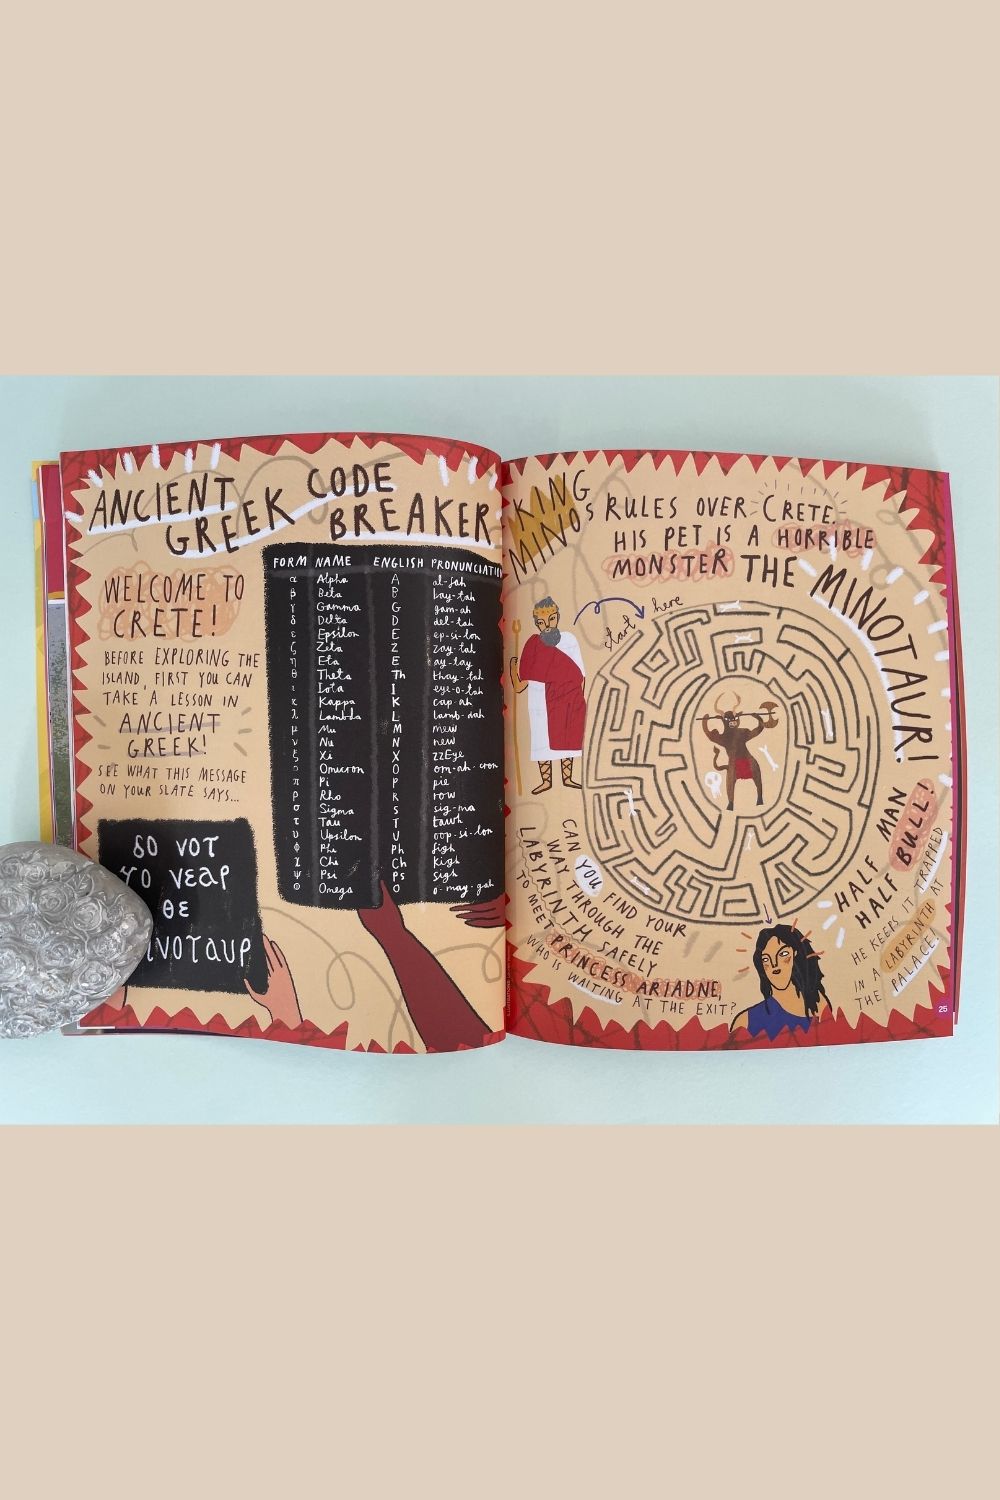 ANCIENT
GREEK
CODE
BREAKER
WELCOME TO
CRETE!
BEFORE EXPLORING THE
ISLAND, FIRST YOU CAN
TAKE A LESSON IN
ANCIENT
GREEK!
SEE WHAT THIS MESSAGE
ON YOUR SLATE SAYS...
δο νοτ
γο νεαρ
θε
ινοταυρ
FORM NAME ENGLISH PRONUNCIATION
α Alpha A al-fah
β Beta B bay-tah
γ Gamma G gam-ah
δ Delta D del-tah
ε Epsilon E ep-si-lon
ζ Zeta Z zay-tah
η Eta E ay-tay
θ Theta Th thay-tah
ι Iota I eye-o-tah
κ Kappa K cap-ah
λ Lambda L lamb-dah
μ Mu M mew
ν Nu N new
ξ Xi X zzEye
Omicron O om-ah-cron
π Pi P pie
ρ Rho R row
σ Sigma S sig-ma
τ Tau T tawh
υ Upsilon U oop-si-lon
φ Phi Ph figh
Chi Ch kigh
ψ Psi Ps sigh
Omega O o-may-gah
KING
MINOS RULES OVER CRETE.
HIS PET IS A HORRIBLE
MONSTER THE MINOTAUR!
start here
HALF MAN
HALF BULL!
HE KEEPS IT TRAPPED
IN A LABYRINTH AT
THE PALACE!
CAN YOU FIND YOUR
WAY THROUGH THE
LABYRINTH SAFELY
TO MEET PRINCESS ARIADNE,
WHO IS WAITING AT THE EXIT?
25